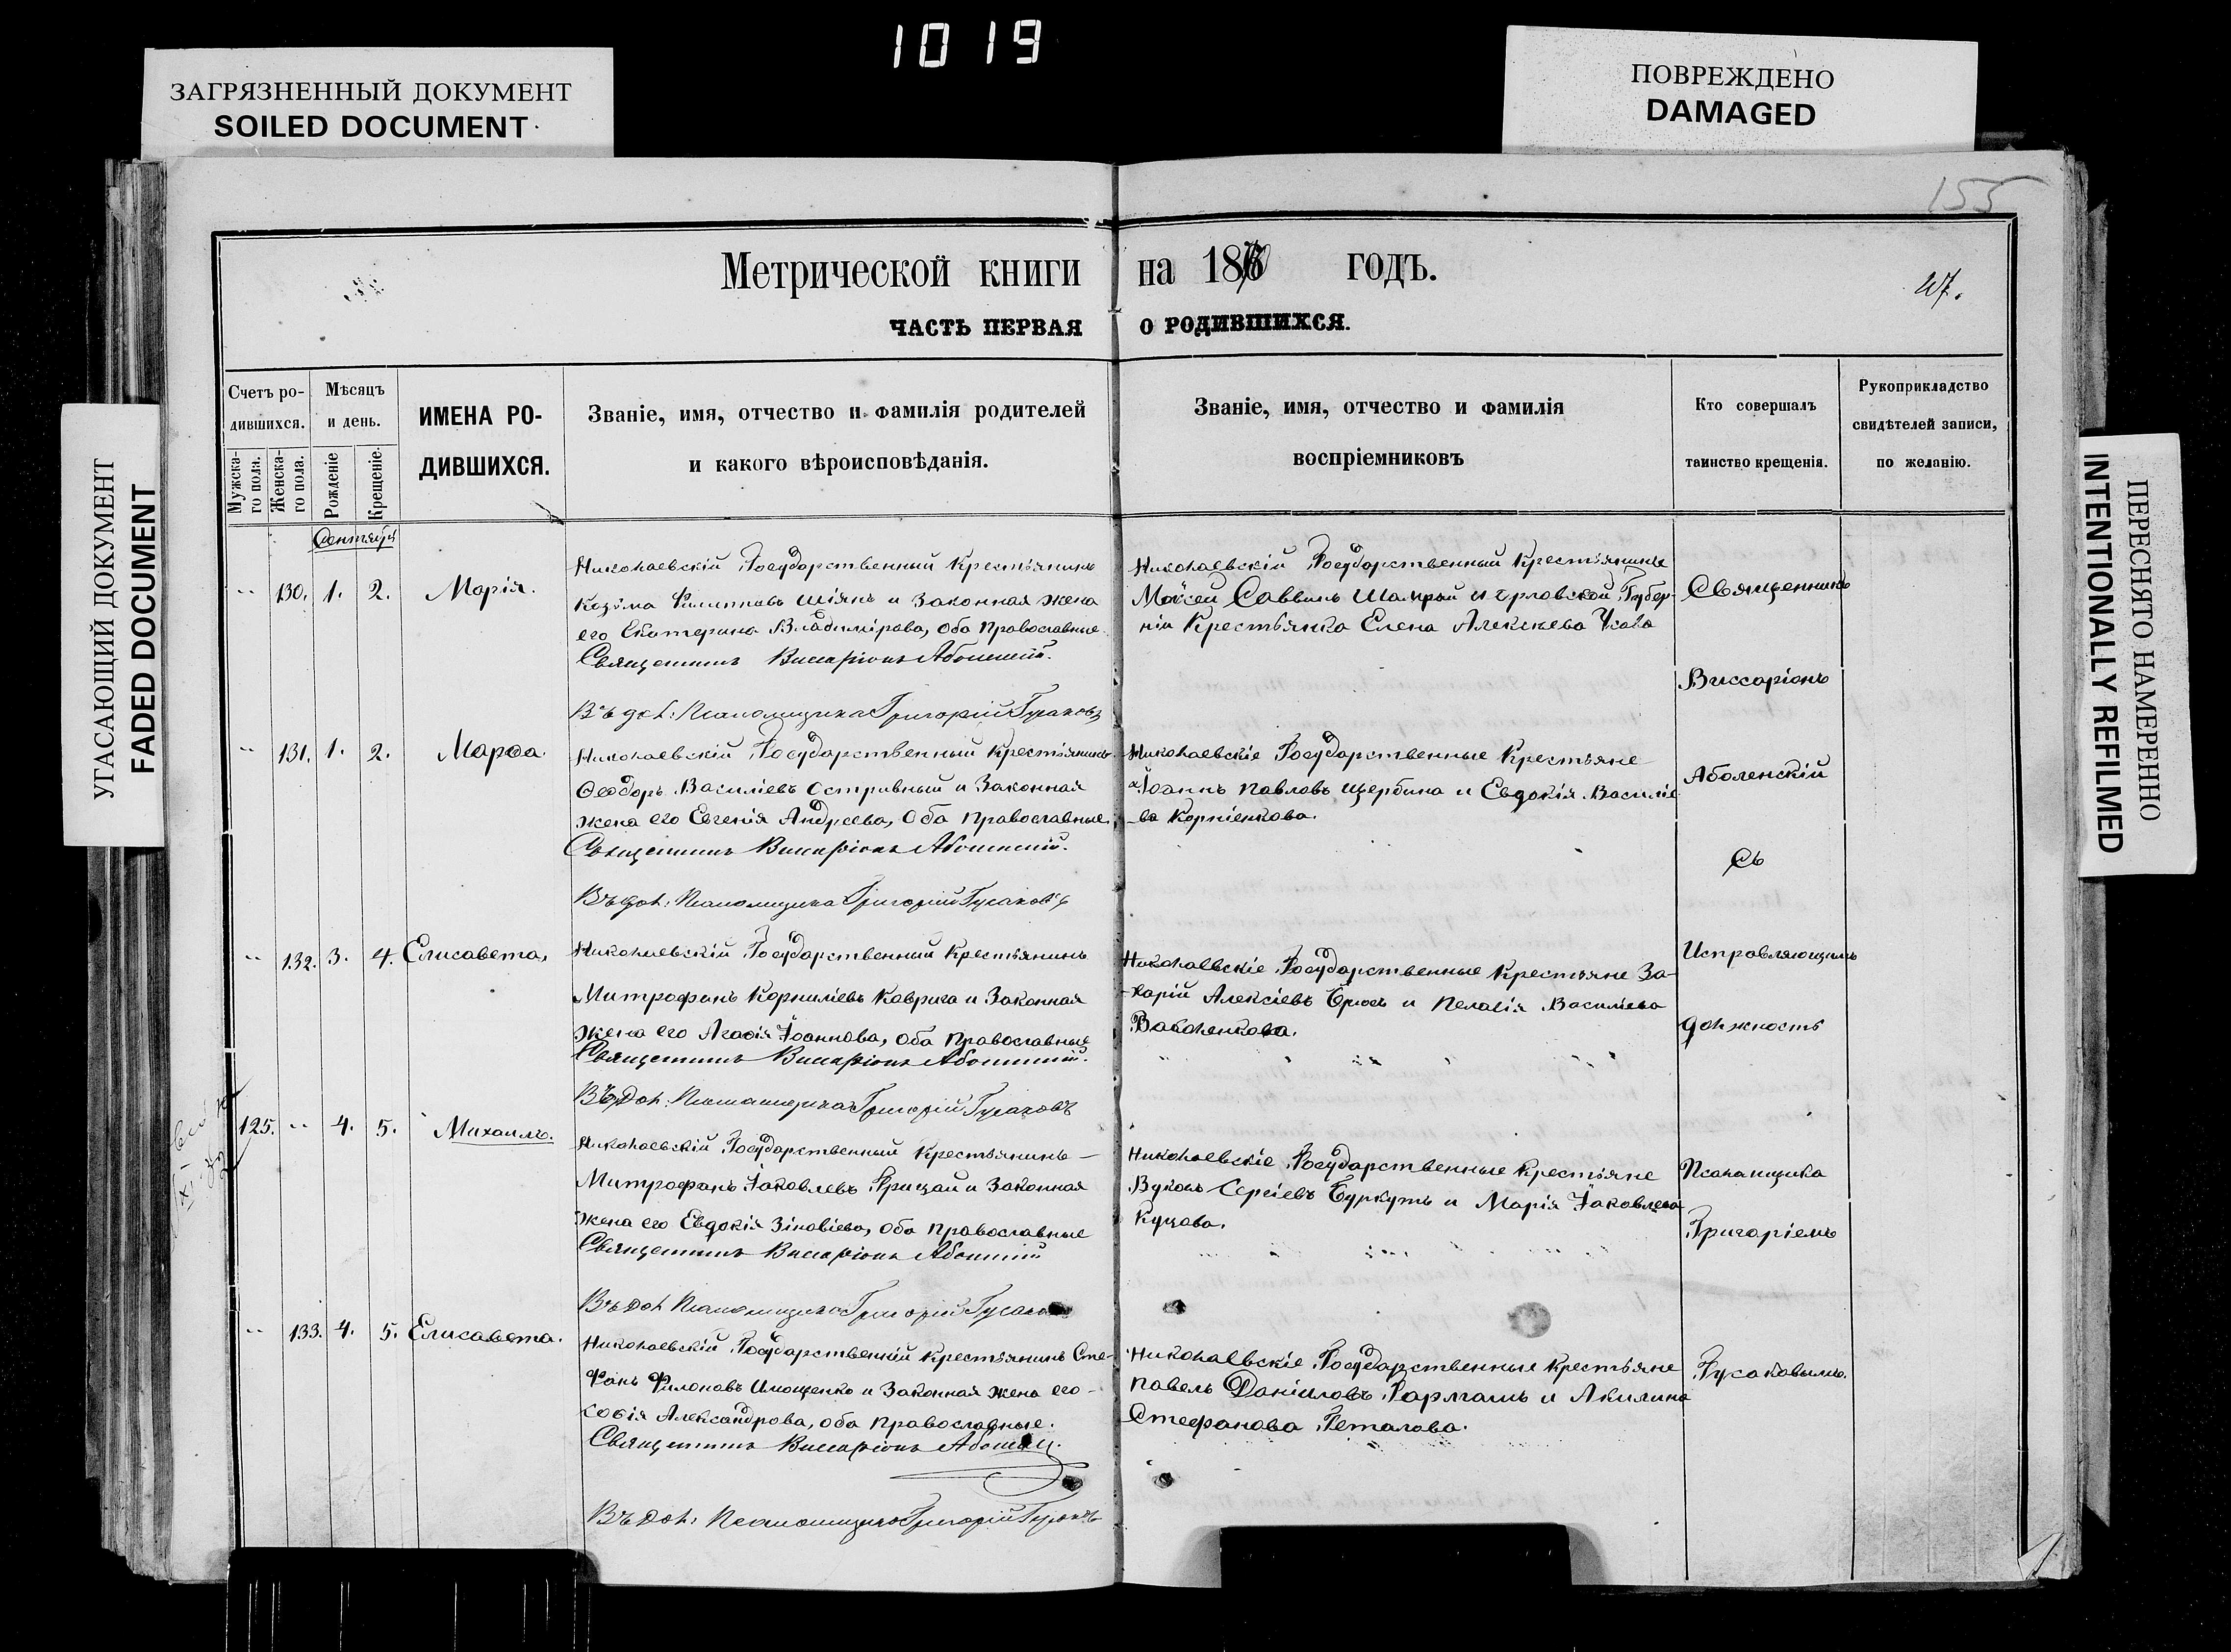 1019
ЗАГРЯЗНЕННЫЙ ДОКУМЕНТ
SOILED DOCUMENT
ПОВРЕЖДЕНО
DAMAGED
УГАСАЮЩИЙ ДОКУМЕНТ
FADED DOCUMENT
ПЕРЕСНЯТО НАМЕРЕННО
INTENTIONALLY REFILMED
155
Метрической книги на 18 годъ.
ЧАСТЬ ПЕРВАЯ О РОДИВШИХСЯ.
Счетъ ро-
дившихся.
Мужска-
го пола.
Женска-
го пола.
Мѣсяцъ
и день.
Рожденіе
Крещеніе.
ИМЕНА РО-
ДИВШИХСЯ.
Званіе, имя, отчество и фамилія родителей
и какого вѣроисповѣданія.
Званіе, имя, отчество и фамилія
воспріемниковъ
Кто совершалъ
таинство крещенія.
Рукоприкладство
свидѣтелей записи,
по желанію.
Сентября
130. 1. 2. Марія.
Николаевскій Государственный Крестьянинъ
Козьма Филипповъ и Законная жена
его Екатерина Владимірова, оба Православные
Священникъ Виссаріонъ Аболенскій.
Въ дол: Псаломщика Григорій Гусаковъ
Николаевскій Государственный Крестьянинъ
Моѵсей Саввинъ Шамрай и Губер-
ніи Крестьянка Елена Алексѣева
131. 1. 2. Марѳа.
Николаевскій Государственный Крестьянинъ
Ѳеодоръ Василіевъ Остривный и Законная
жена его Евгенія Андреева, оба Православные.
Священникъ Виссаріонъ Аболенскій.
Въ дол: Псаломщика Григорій Гусаковъ
Николаевскіе Государственные Крестьяне
Іоаннъ Павловъ Щербина и Евдокія Василіе-
-ва Корніенкова.
132. 3. 4. Елисавета,
Николаевскій Государственный Крестьянинъ
Митрофанъ Корниліевъ Коврига и Законная
жена его Агаѳія Іоаннова, оба Православные
Священникъ Виссаріонъ Аболенскій.
Въ дол: Псаломщика Григорій Гусаковъ
Николаевскіе Государственные Крестьяне За-
-харій Алексіевъ и Пелагія Василіева
125. 4. 5. Михаилъ.
Николаевскій Государственный Крестьянинъ
Митрофанъ Іаковлевъ Грицай и Законная
жена его Евдокія Зіновіева, оба Православные
Священникъ Виссаріонъ Аболенскій
Въ дол Псаломщика Григорій Гусаковъ
Николаевскіе Государственные Крестьяне
Вуколъ Сергіевъ Буркутъ и Марія Іаковлева
Куцова.
133. 4. 5. Елисавета.
Николаевскій Государственный Крестьянинъ Сте-
фанъ Филоновъ и Законная жена его
Софія Александрова, оба Православные.
Священникъ Виссаріонъ Аболенскій.
Въ дол: Псаломщика Григорій Гусаковъ
Николаевскіе Государственные Крестьяне
Павелъ Даніиловъ и Акилина
Стефанова
Священникъ
Виссаріонъ
Аболенскій
Съ
Исправляющимъ
должность
Псаломщика
Григоріемъ
Гусаковымъ.